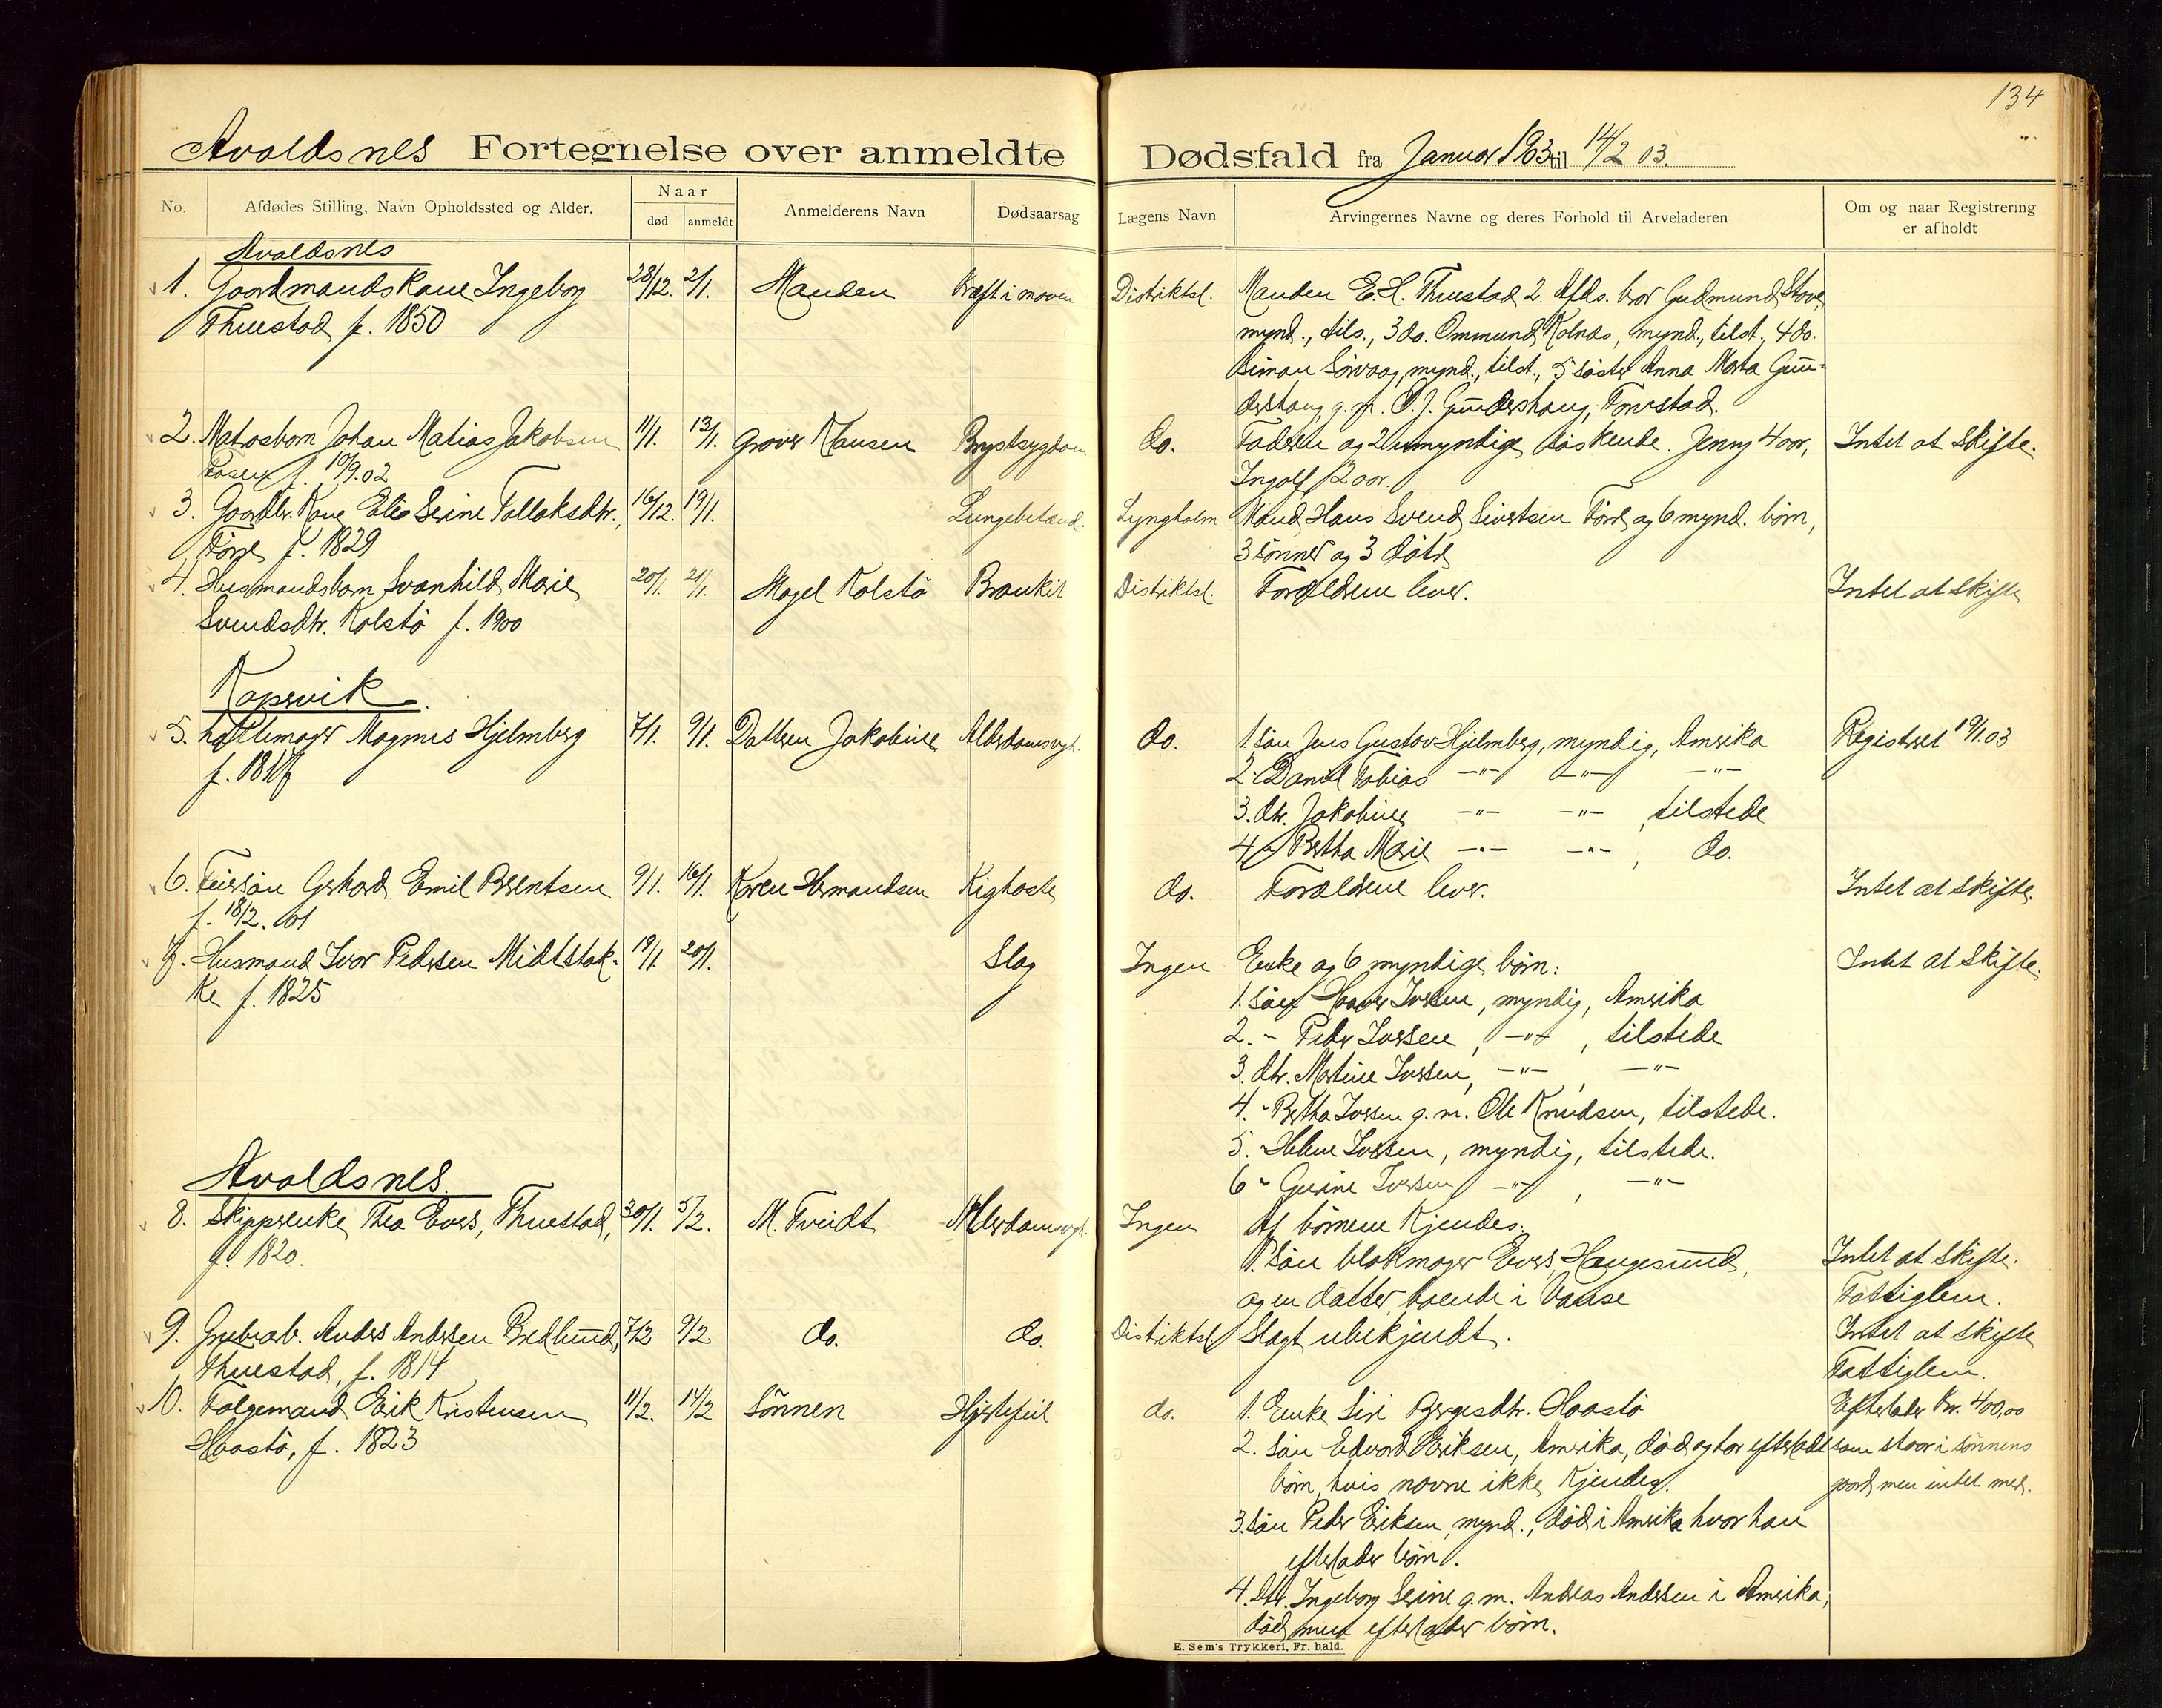 134
Avaldsnes Fortegnelse over anmeldte Dødsfald fra Januar 1903 til 14/2 03.
No. Afdødes Stilling, Navn Opholdssted og Alder. Naar død anmeldt Anmelderens Navn Dødsaarsag Lægens Navn Arvingernes Navne og deres Forhold til Arveladeren Om og naar Registrering er afholdt
Avaldsnes
1. Gaardmandskone Ingeborg 28/12. 2/1. Manden Kræft i maven Distriktsl. Manden E. H. Thuestad 2. Afds. bror Gudmund Stove,
Thuestad f. 1850 mynd., tils., 3 do. Ommund Kolnæs, mynd., tilst., 4 do.
Simon Sørvaag, mynd., tilst., 5 søster Anna Marta Gun-
dershaug g. m. O. J. Gundershaug, Tornstad.
2. Matrosbarn Johan Matias Jakobsen 11/1. 13/1. Graver Hansen Brystsygdom do. Faderen og 2 umyndige søskende. Jenny 4 aar, Intet at skifte.
Fosen f. 10/9.02 Ingolf 2 aar.
3. Gaardbr. Kone Elis Serine Tollaksdtr., 16/12. 19/1. Lungebetænd. Lyngholm Mand Hans Svend Sivertsen Førre og 6 mynd. børn,
Førre f. 1829 3 sønner og 3 døtre
4. Husmandsbarn Svanhild Marie 20/1. 21/1. Magel Kolstø Bronkit Distriktsl. Forældrene lever. Intet at skifte
Svendsdtr. Kolstø f. 1900
Kopervik.
5. Mattemager Magnus Hjelmberg 7/1. 9/1. Datteren Jakobine Alderdomssvgh. do. 1. søn Jens Gustav Hjelmberg, myndig, Amerika Registreret 19/1.03
f. 1817 2. - Daniel Tobias -"- -"- -"-
3. dtr. Jakobine -"- -"- , tilstede
4 - Bertha Marie -"- -"- , do.
6. Feiersøn Gerhard Emil Berentsen 9/1. 16/1. Karen Hermandsen Kighoste do. Forældrene lever. Intet at skifte.
f. 18/2. 01
7. Husmand Ivar Pedersen Midtstok- 19/1. 20/1. Slag Ingen Enke og 6 myndige børn: Intet at skifte.
ke f. 1825 1. søn Haaver Iversen, myndig, Amerika
2. - Peder Iversen, -"- , tilstede
3. dtr. Martine Iversen, -"- , -"-
4. - Bertha Iversen g. m. Ole Knudsen, tilstede.
5. - Helene Iversen, myndig, tilstede.
6 - Gurine Iversen -"- , -"-
Avaldsnes.
8. Skipperenke Thea Evers, Thuestad, 30/1. 5/2. M. Tveidt Alderdomssvgh. Ingen Af børnene kjendes:
f. 1820. 1. søn blokmager Evers, Haugesund, Intet at skifte.
og en datter, boende i Vanse Fattiglem.
9. Grubearb. Anders Andersen Bredlund, 7/2 9/2 do. do. Distriktsl Slægt ubekjendt. Intet at skifte
Thuestad, f. 1814 Fattiglem.
10. Følgemand Erik Kristensen 11/2. 14/2 Sønnen Hjertefeil do. 1. Enke Siri Bergesdtr. Haastø Efterlader Kr. 400,00
Haastø, f. 1823 2. søn Edvard Eriksen, Amerika, død og har efterladt som staar i sønnens
børn, hvis navne ikke kjendes. gaard, men intet mer.
3. søn Peder Eriksen, mynd., død i Amerika hvor han
efterlader børn.
4. dtr. Ingeborg Serine g. m. Andreas Andersen i Amerika,
død, men efterlader børn.
E. Sem's Trykkeri, Fr. hald.